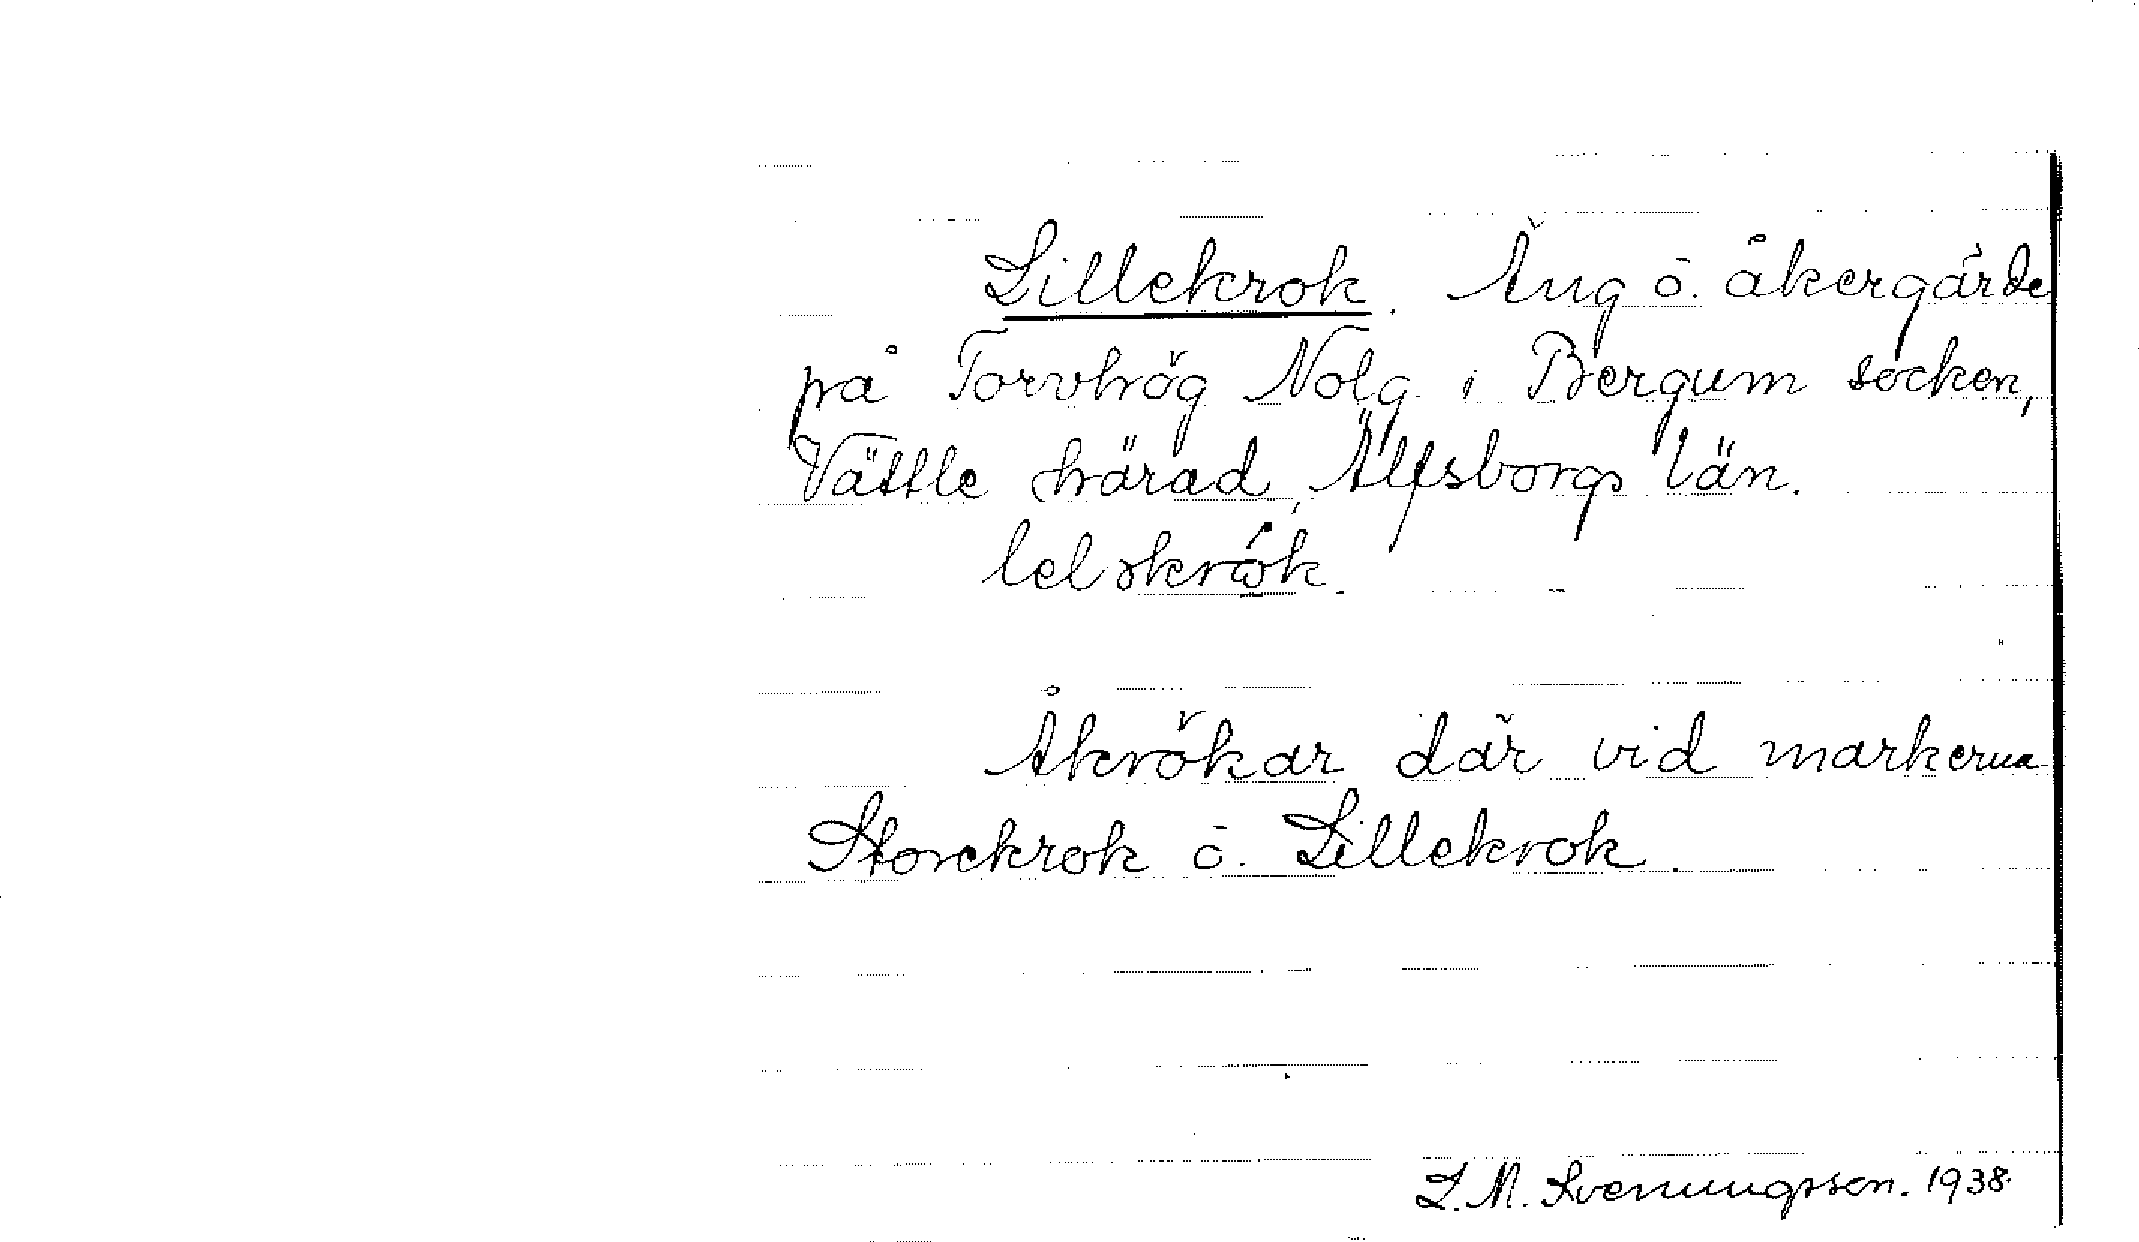 Lillekrok. Äng o. åkergärde
på Torvhög Nolg. i Bergum socken,
Vättle härad, Älfsborgs län.
Åkrökar där vid markerna
Storekrok o. Lillekrok.
L. M. Svenungsson. 1938